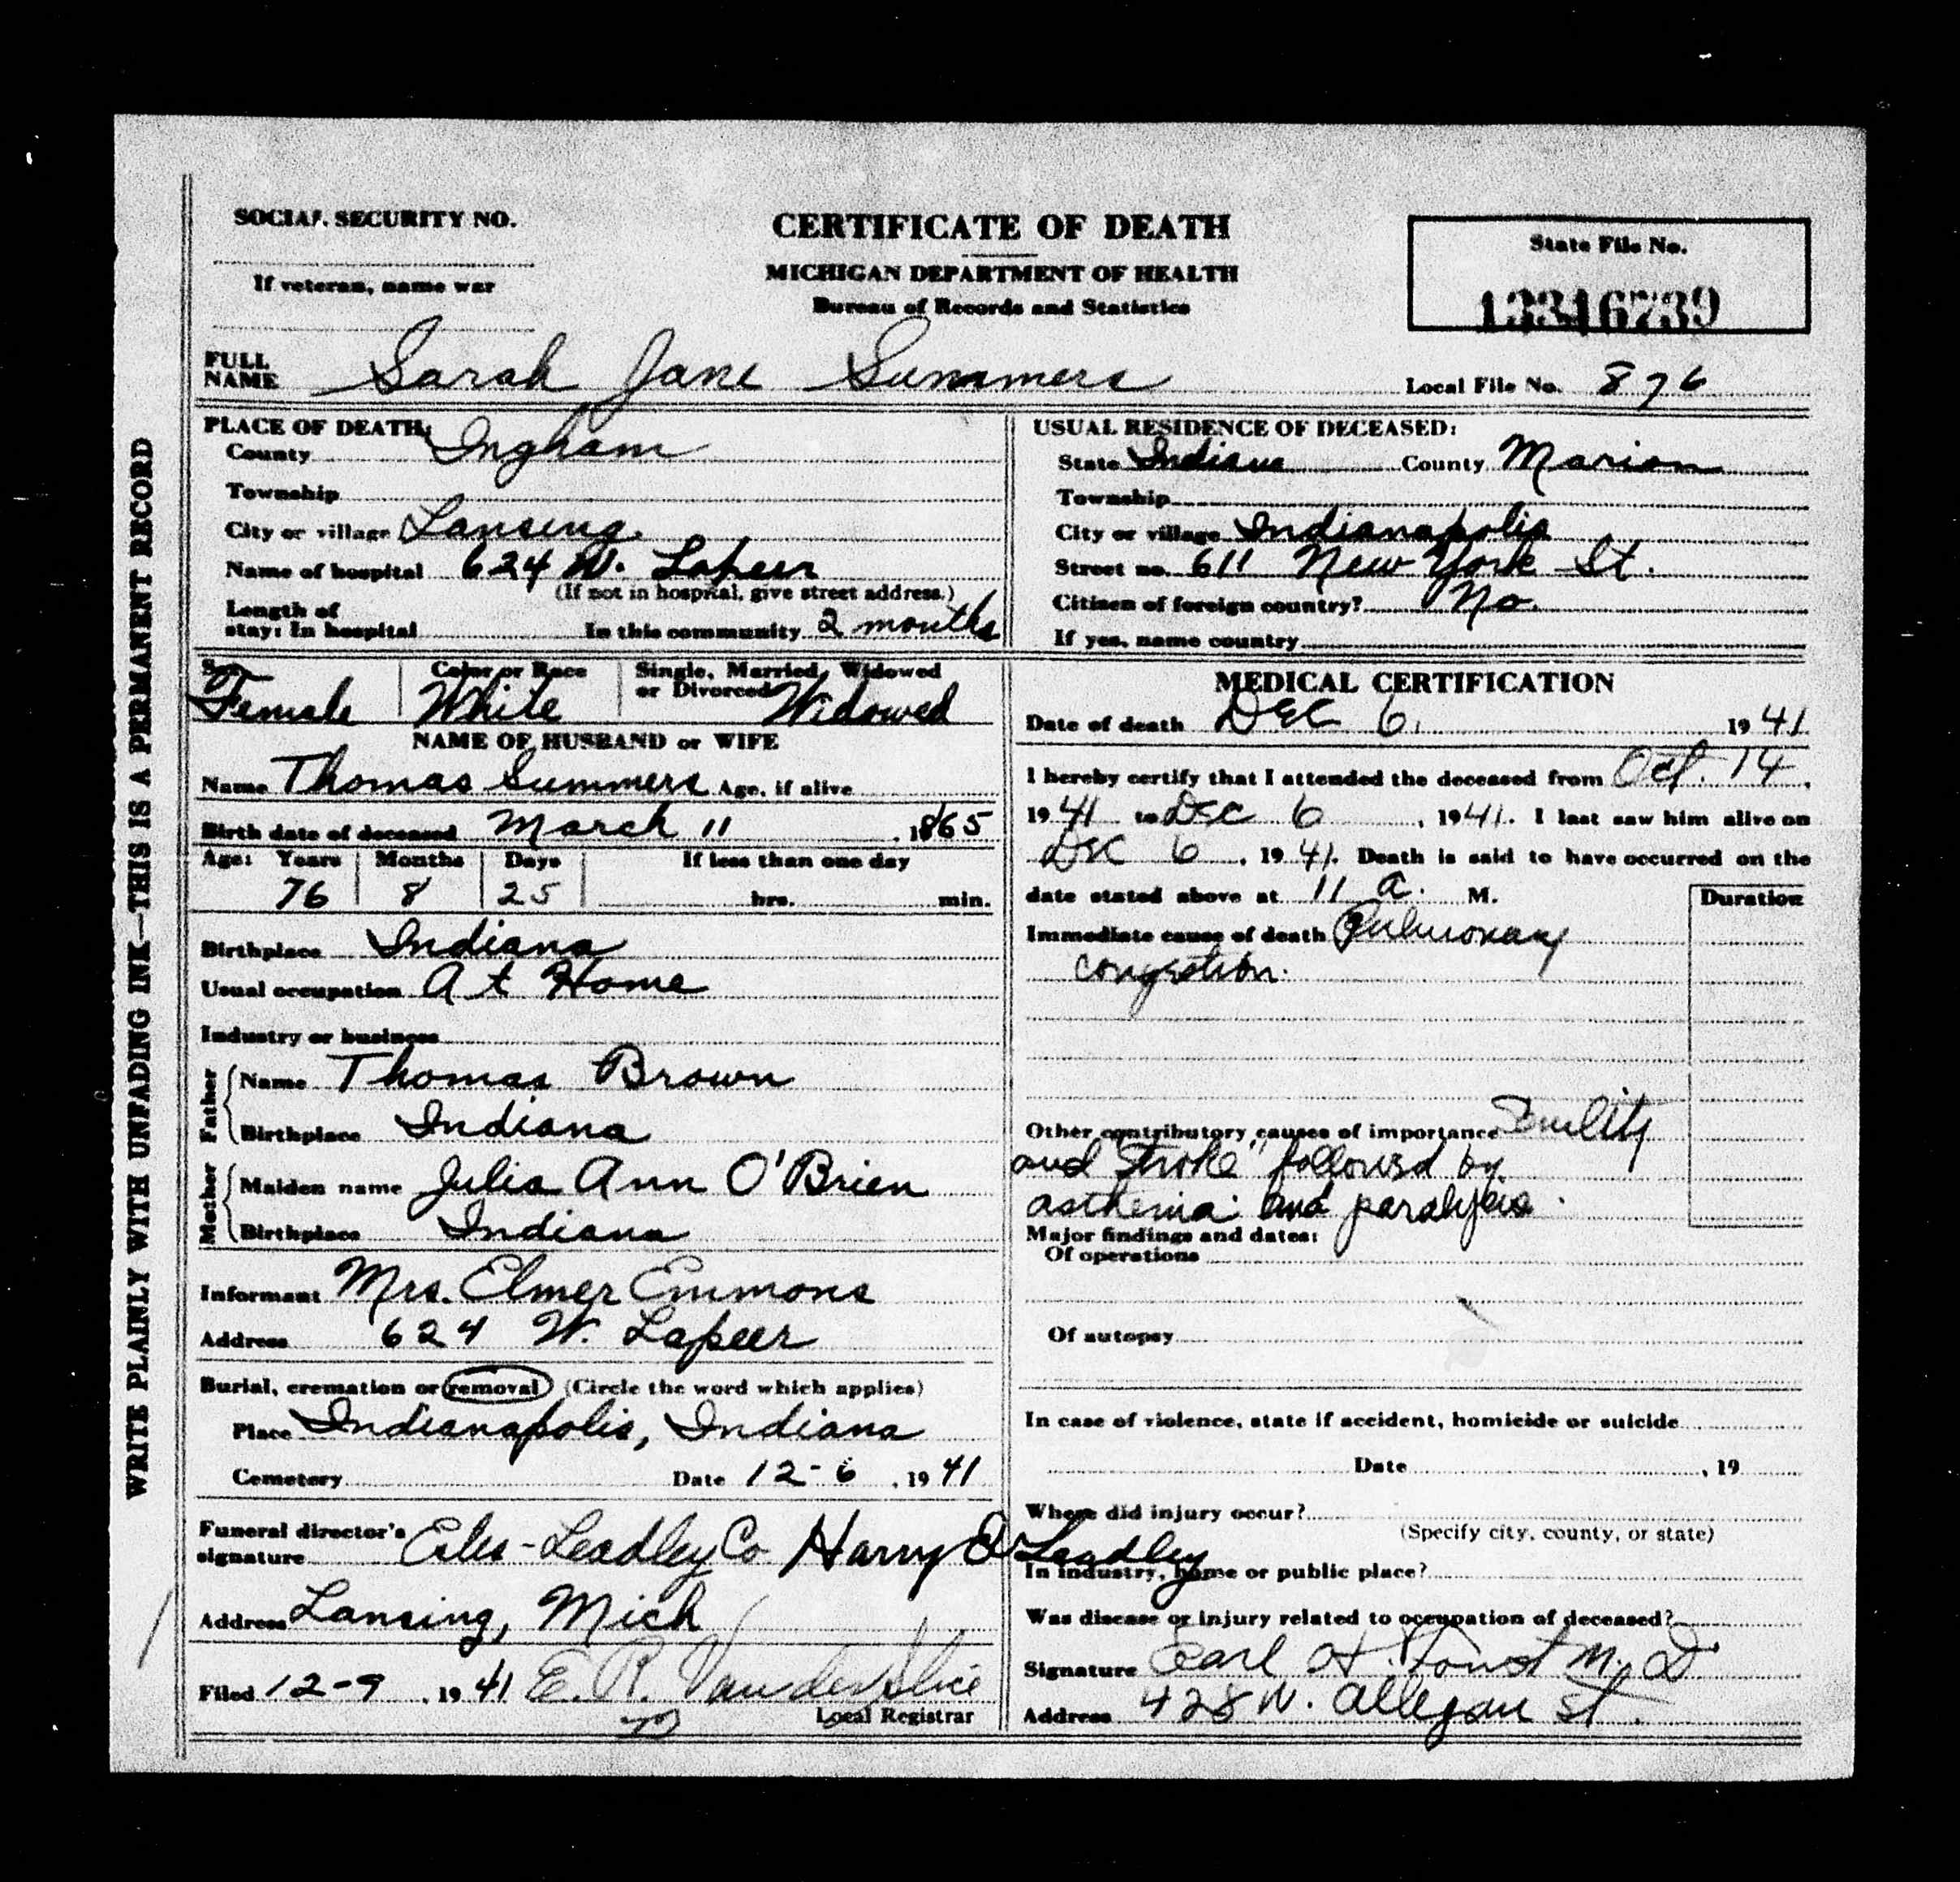 WRITE PLAINLY WITH UNFADING INK—THIS IS A PERMANENT RECORD
SOCIAL SECURITY NO.
If veteran, name war
CERTIFICATE OF DEATH
MICHIGAN DEPARTMENT OF HEALTH
Bureau of Records and Statistics
State File No.
13316739
FULL NAME Sarah Jane Summers
Local File No. 876
PLACE OF DEATH:
County Ingham
Township
City or village Lansing
Name of hospital 624 W. Lapeer
(If not in hospital, give street address.)
Length of stay: In hospital In this community 2 months
USUAL RESIDENCE OF DECEASED:
State Indiana County Marion
Township
City or village Indianapolis
Street no. 611 New York St.
Citizen of foreign country? No.
If yes, name country
Female
Color or Race White
Single, Married, Widowed or Divorced Widowed
NAME OF HUSBAND or WIFE
Name Thomas Summers Age, if alive
Birth date of deceased March 11, 1865
Age: Years Months Days If less than one day
76 8 25 hrs. min.
Birthplace Indiana
Usual occupation At Home
Industry or business
Father
Name Thomas Brown
Birthplace Indiana
Mother
Maiden name Julia Ann O'Brien
Birthplace Indiana
Informant Mrs. Elmer Emmons
Address 624 W. Lapeer
Burial, cremation or removal (Circle the word which applies)
Place Indianapolis, Indiana
Cemetery Date 12-6, 1941
Funeral director's signature Co Harry Leadley
Address Lansing, Mich
Filed 12-9, 1941 E. R. VanderSlice
Local Registrar
MEDICAL CERTIFICATION
Date of death Dec 6, 1941
I hereby certify that I attended the deceased from Oct. 14,
1941 to Dec 6, 1941. I last saw him alive on
Dec 6, 1941. Death is said to have occurred on the
date stated above at 11 a. M.
Duration
Immediate cause of death Pulmonary
congestion.
Other contributory causes of importance Senility
and "Stroke" followed by
asthenia and paralysis.
Major findings and dates:
Of operations
Of autopsy
In case of violence, state if accident, homicide or suicide
Date , 19
Where did injury occur?
(Specify city, county, or state)
In industry, home or public place?
Was disease or injury related to occupation of deceased?
Signature Earl M. D.
Address 428 W. Allegan St.